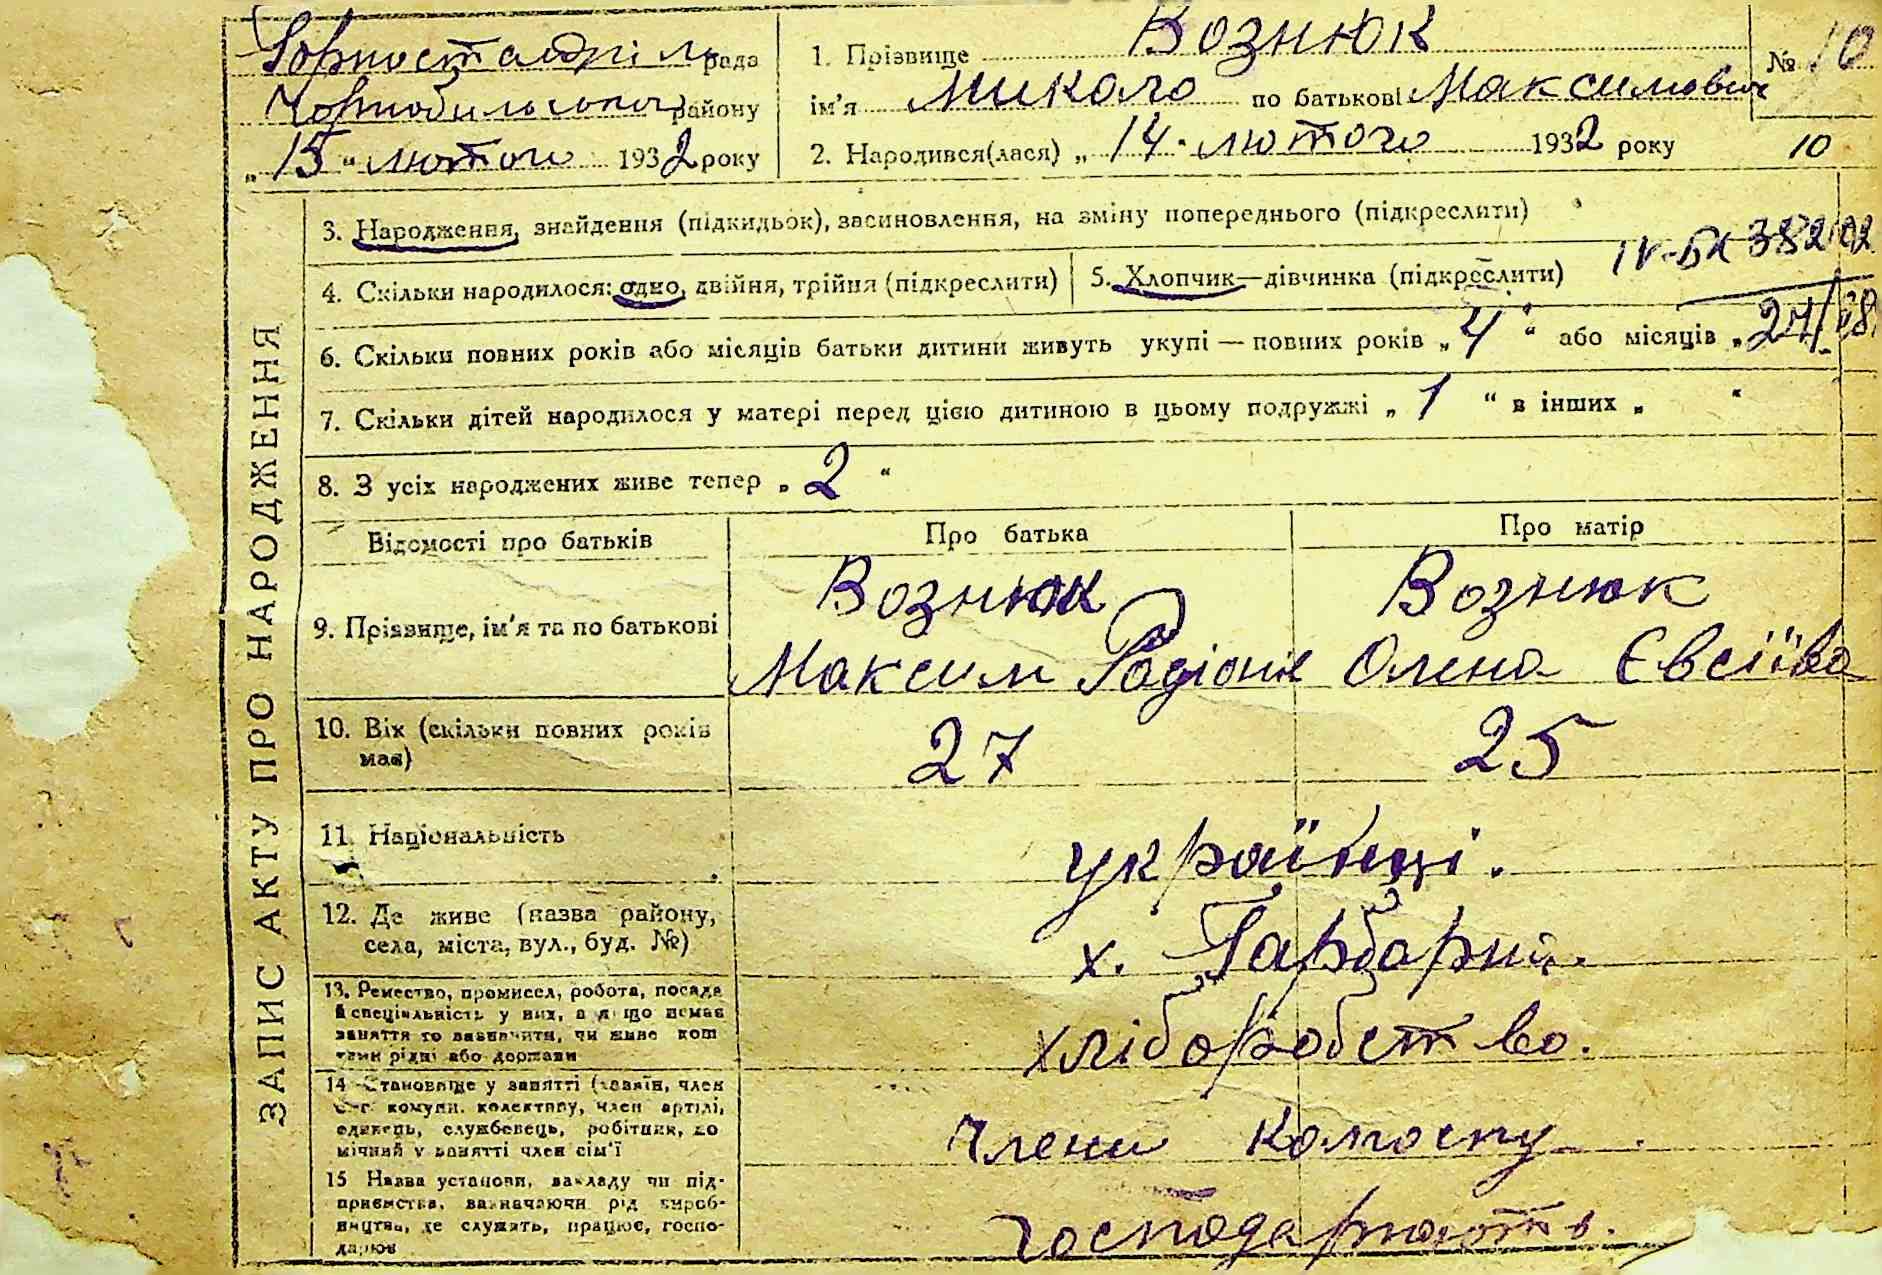 Горностайпільська рада
Чорнобильського району
„15“ лютого 1932 року
1. Прізвище Вознюк
ім'я Микола по батькові Максимович
№ 10
2. Народився(лася) „14. лютого 1932 року
10
ЗАПИС АКТУ ПРО НАРОДЖЕННЯ
3. Народження, знайдення (підкидьок), засиновлення, на зміну попереднього (підкреслити)
4. Скільки народилося: одно, двійня, трійня (підкреслити)
5. Хлопчик—дівчинка (підкреслити)
IV-БК 382102
6. Скільки повних років або місяців батьки дитини живуть укупі — повних років „4“ або місяців „
7. Скільки дітей народилося у матері перед цією дитиною в цьому подружжі „1“ в інших „ “
8. З усіх народжених живе тепер „2“
Відомості про батьків
Про батька
Про матір
9. Прізвище, ім'я та по батькові
Вознюк
Максим Родіонів
Вознюк
Олена Євсіїва
10. Вік (скільки повних років
має)
27
25
11. Національність
українці.
12. Де живе (назва району,
села, міста, вул., буд. №)
х. Гарбарні.
13. Ремество, промисел, робота, посада
й спеціяльність у них, а якщо немає
заняття то визначити, чи живе кош
тами рідні або держави
хліборобство.
14 Становище у занятті (хазяїн, член
с.-г. комуни, колективу, член артілі,
одинець, службовець, робітник, по
мічний у занятті член сім'ї
члени колгоспу
15 Назва установи, закладу чи під-
приємства, визначаючи рід вироб-
ництва, де служить, працює, госпо-
дарює
господарюють.